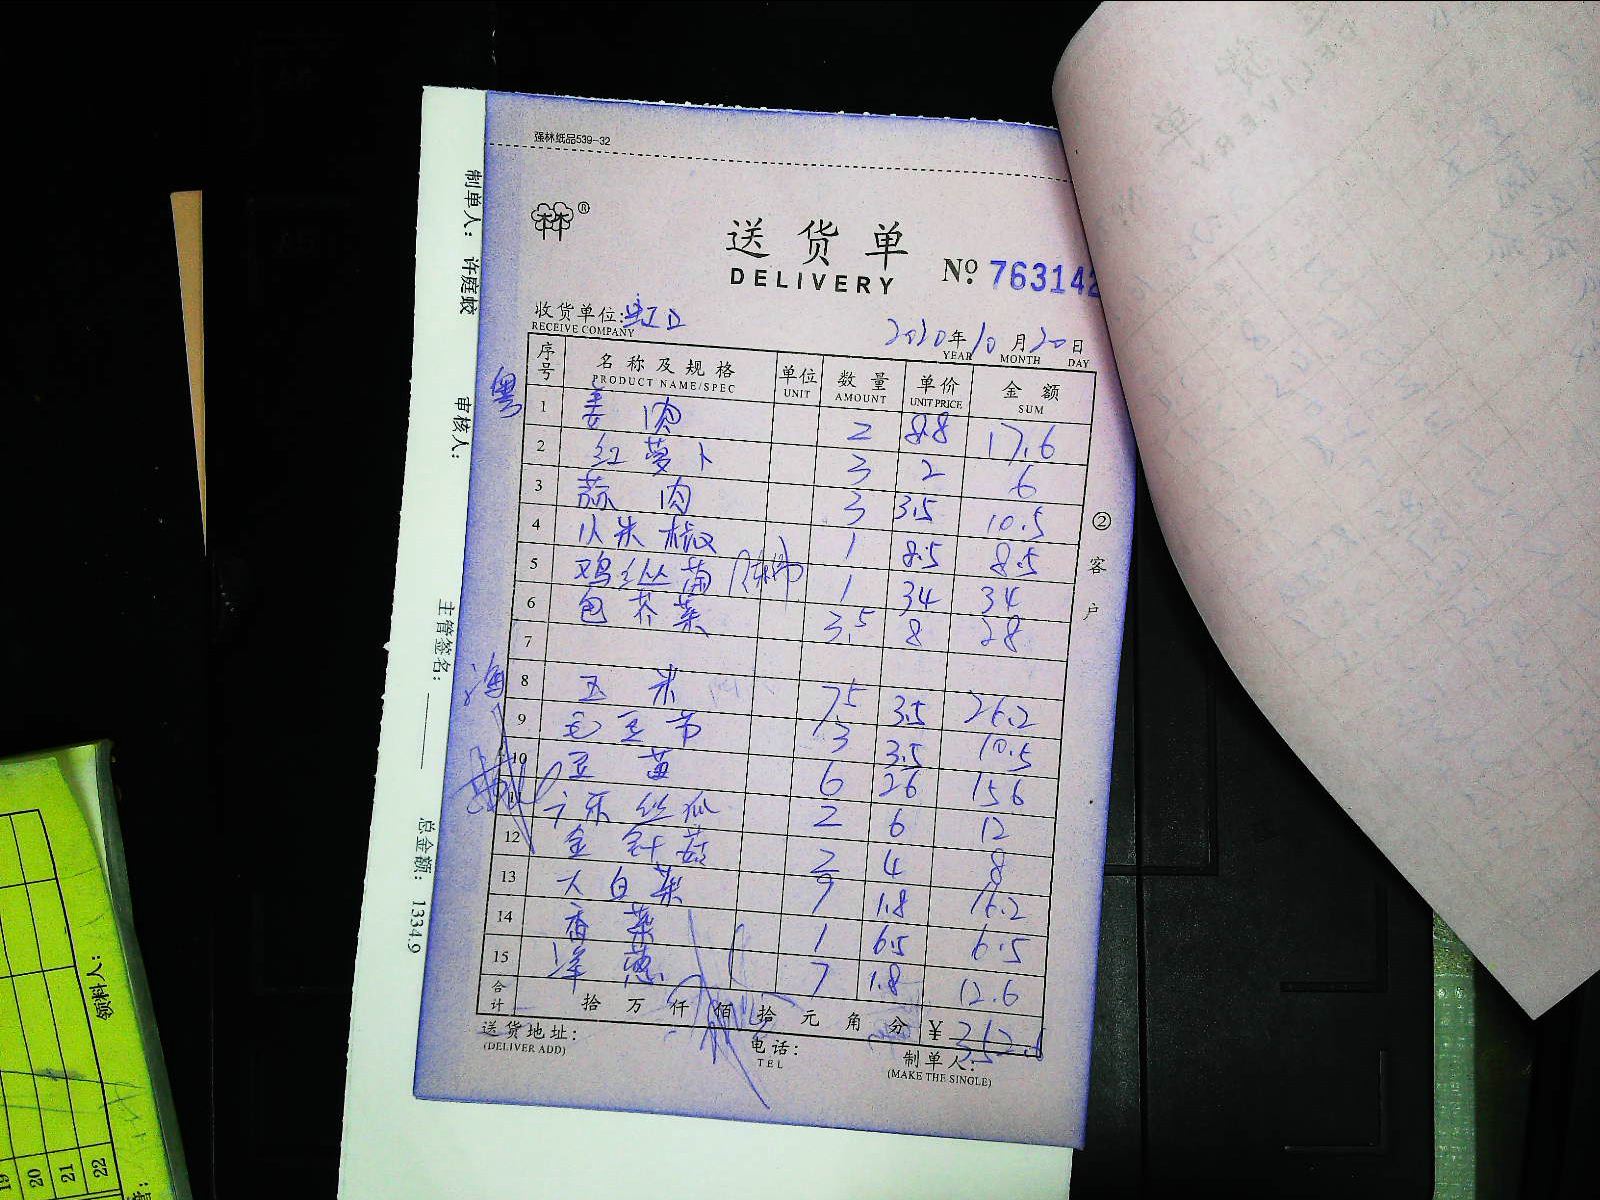 强林纸品539-32
林®
送货单
DELIVERY
No. 763142
收货单位:虹口
RECEIVE COMPANY
2020年10月20日
YEAR MONTH DAY
序号 名称及规格 单位 数量 单价 金额
PRODUCT NAME/SPEC UNIT AMOUNT UNIT PRICE SUM
粤
1 姜肉 2 8.8 17.6
2 红萝卜 3 2 6
3 蒜肉 3 3.5 10.5
4 小米椒 1 8.5 8.5
5 鸡纵菌 1 34 34
6 包芥菜 3.5 8 28
7
海
8 玉米 7.5 3.5 26.2
9 毛豆节 3 3.5 10.5
10 豆苗 6 26 156
11 丝瓜 2 6 12
12 金针菇 2 4 8
13 大白菜 9 1.8 16.2
14 香菜 1 6.5 6.5
15 洋葱 7 1.8 12.6
合计 拾万仟佰拾元角分 ¥352.6
送货地址: 电话: 制单人:
(DELIVER ADD) TEL (MAKE THE SINGLE)
②客户
制单人: 许庭蛟 审核人: 主管签名: 总金额: 1334.9
领料人:
20
21
22